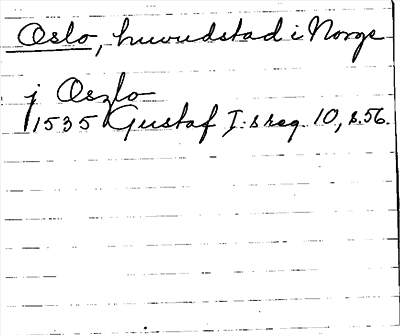 Oslo, huvudstad i Norge
j Oszlo
1535 Gustaf I:s reg. 10, s. 56.